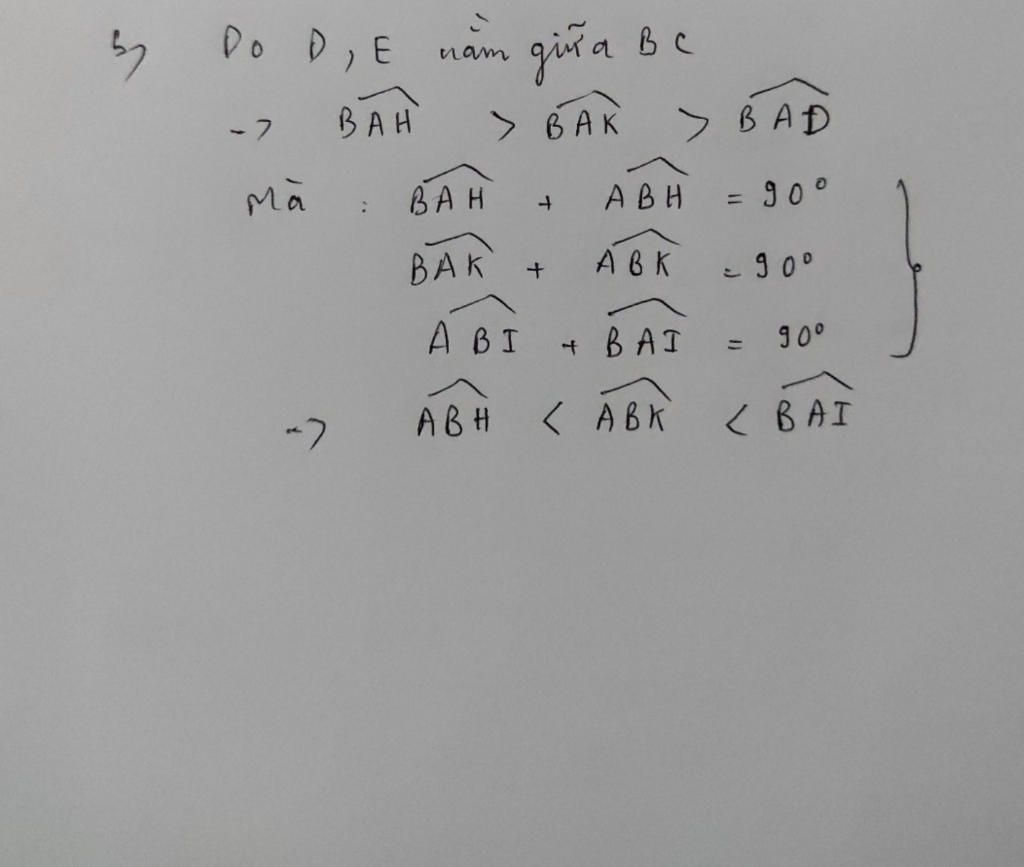 b, Do D, E nằm giữa B C
-> \widehat{BAH} > \widehat{BAK} > \widehat{BAD}
Mà : \widehat{BAH} + \widehat{ABH} = 90°
\widehat{BAK} + \widehat{ABK} = 90°
\widehat{ABI} + \widehat{BAI} = 90°
-> \widehat{ABH} < \widehat{ABK} < \widehat{BAI}